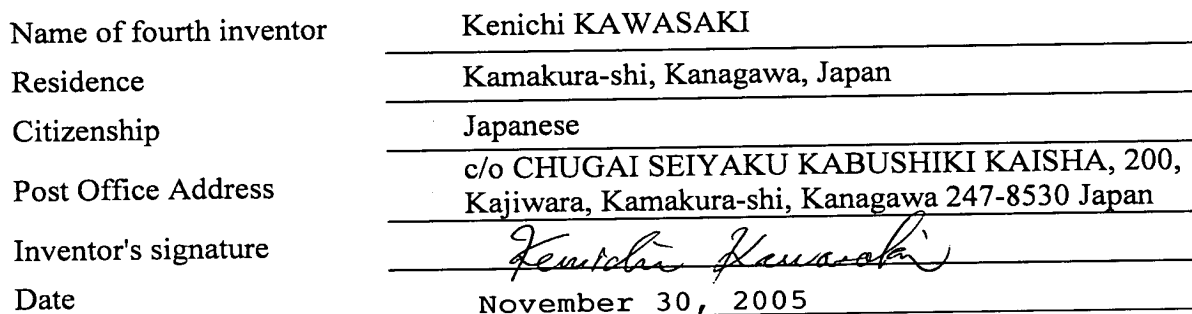 Name of fourth inventor Kenichi KAWASAKI
Residence Kamakura-shi, Kanagawa, Japan
Citizenship Japanese
Post Office Address c/o CHUGAI SEIYAKU KABUSHIKI KAISHA, 200,
Kajiwara, Kamakura-shi, Kanagawa 247-8530 Japan
Inventor's signature Kenichi Kawasaki
Date November 30, 2005